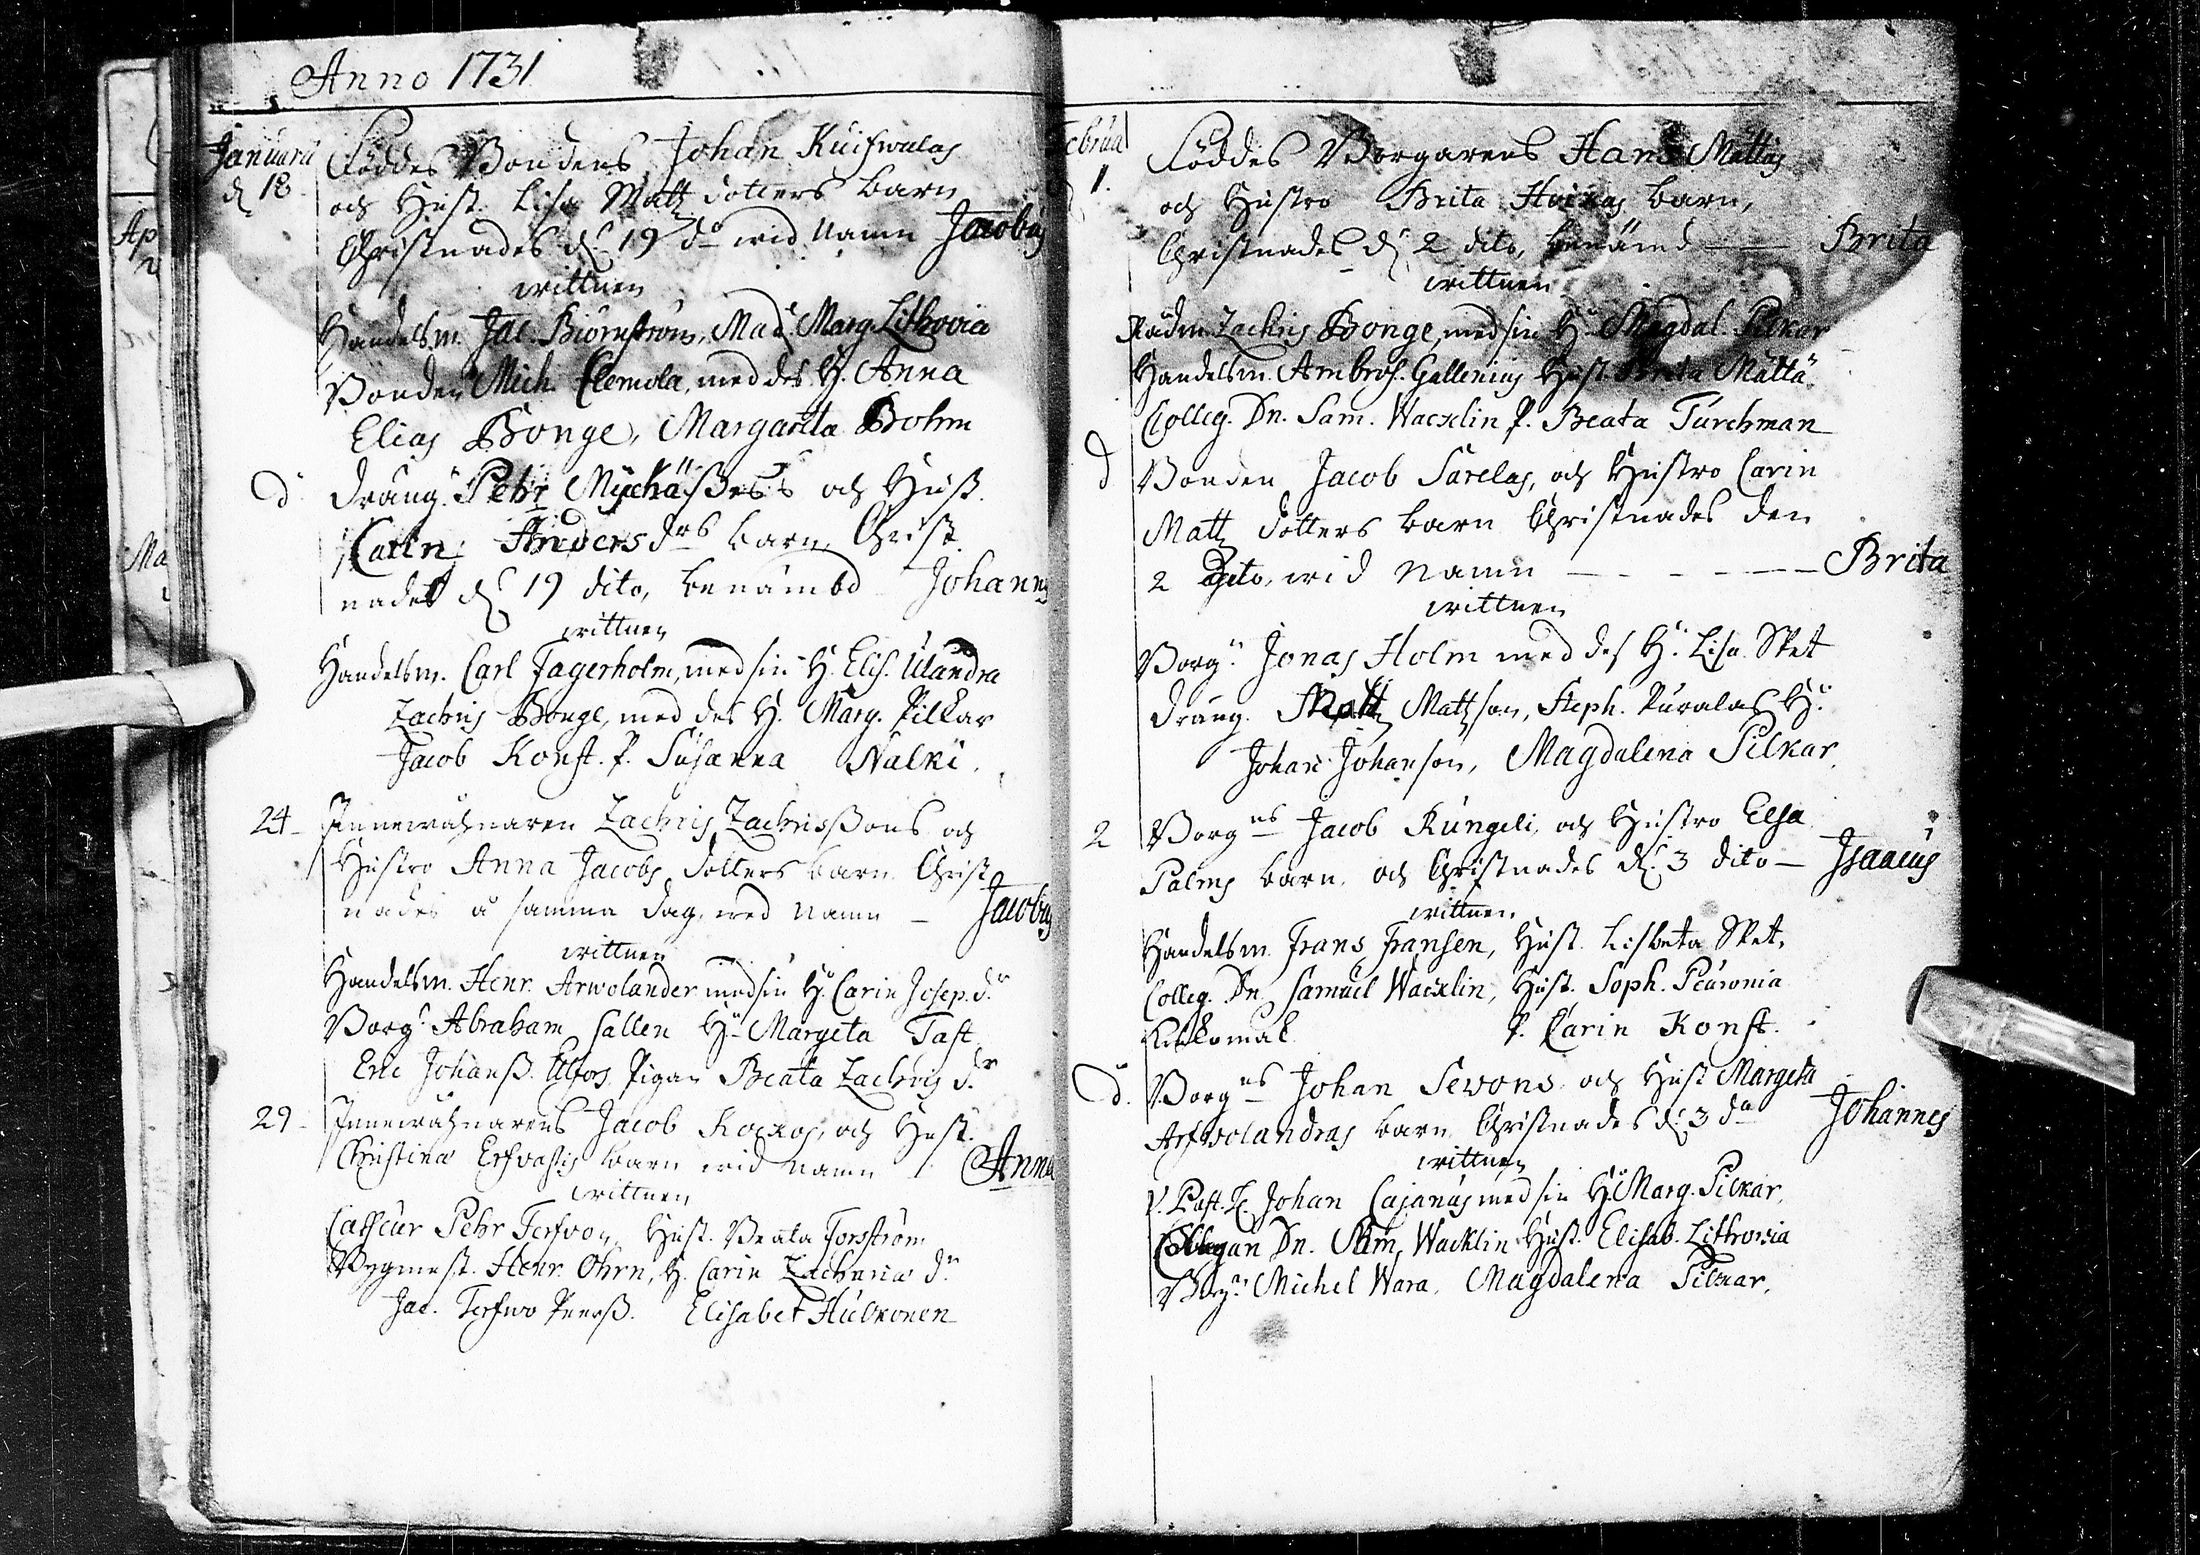 Anno 1731
Januarii
d. 18.
Föddes Bondens Johan Kuifwalas
och Hust. Lisa Matz dotters barn
Christnades d. 19 do wid Namn Jacobus
wittnen
Handelsm. Jac. Biörnström, Mad. Marg. Lithovia
Bonden Mich. Clemola, med des H. Anna
Elias Bonge, Margareta Bohm
d. dräng. Pehr och Hust.
Carin Anders drs barn Christ
nades d. 19 dito, benämbd Johannes
wittnen
Handelsm. Carl Fagerholm, med sin H. Elis. Ulandra
Zachris Bonge, med des H. Marg. Pilkar
Jacob Konst. P. Susanna Walki.
24 Innewåhnaren Zachris Zachrisßons och
Hustro Anna Jacobs dotters barn Christ
nades å samma dag, wed namn – Jacobus
wittnen
Handelsm. Henr. Arwolander med sin H. Carin Josep. dr
Borg. Abraham Sallen H. Margeta Tast
Eric Johanß. Pigan Beata Zachris dr
29 Innewåhnarens Jacob och Hust.
Christina barn wid namn Anna
wittnen
Pehr Terfvo, Hust. Beata Forsström
Bygmest. Henr. Öhrn, H. Carin Zacharia dr
Jac. Terfwo Elisabet Hulkonen
Februa
1.
Föddes Borgarens Hans Mattas
och Hustro Brita barn,
Christnades d. 2 dito, benämd —— Brita
wittnen
Rådm. Zachris Bonge, med sin H. Magdal. Pilkar
Handelsm. Ambros. Gallenius Hust. Brita Matta
Colleg. Dn. Sam. Wacklin P. Beata Turchman
d Bonden Jacob Sarelas, och Hustro Carin
Matz dotters barn Christnades den
2 dito, wid Namn – – – – Brita
wittnen
Borg. Jonas Holm med des H. Lisa Spet
dräng. Matz Matzson, Steph. Puralas H.
Johan Johanson, Magdalena Pilkar.
2 Borg ns Jacob Kungeli, och Hustro Elsa
Palms barn, och Christnades d. 3 dito – Isaacus
wittnen
Handelsm. Frans Fransen, Hust. Lisbeta Spet.
Colleg. Dn. Samuel Wacklin, Hust. Soph. Peuronia
P. Carin Konst.
d. Borg ns Johan Sewons och Hust Margeta
Arfwolandras barn Christnades d. 3 do Johannes
wittnen
V. Past. Johan Cajanus med sin H. Marg. Pilkar.
Collegan Dn. Sam. Wacklin Hust. Elisab. Lithovia
Borg. Michel Wara. Magdalena Pilkar.